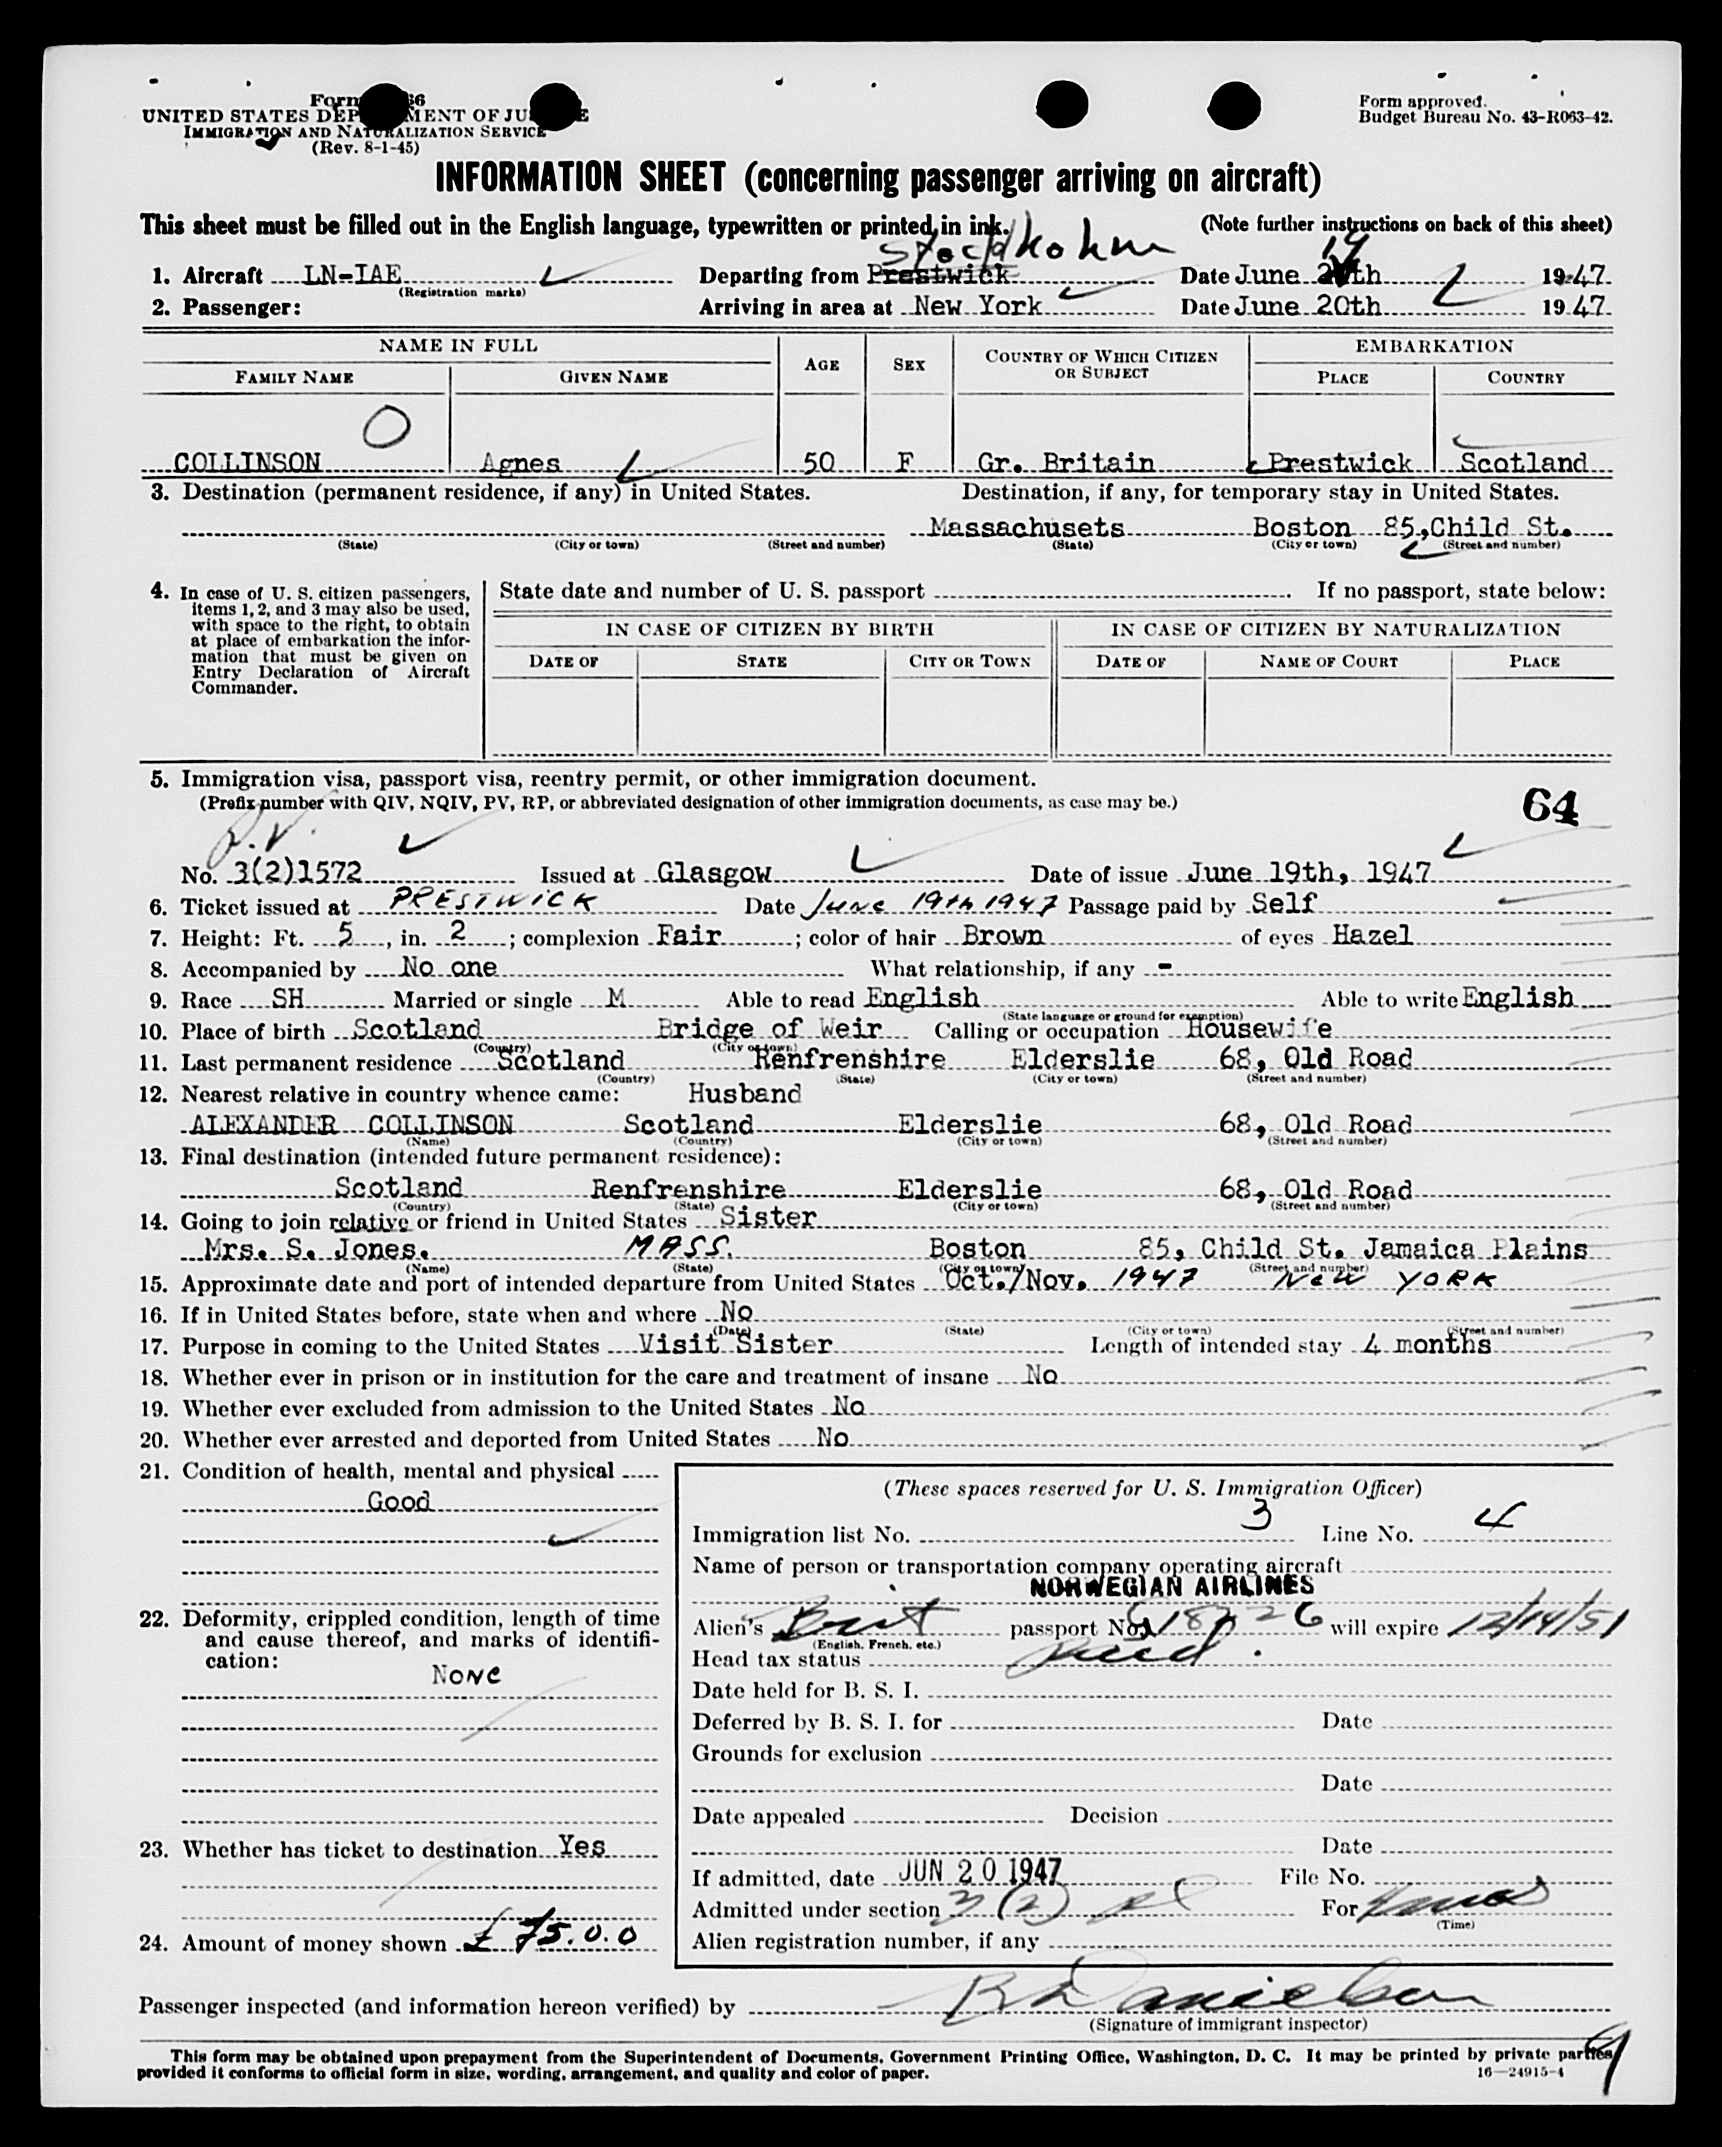 Form
UNITED STATES DEPARTMENT OF JUSTICE
IMMIGRATION AND NATURALIZATION SERVICE
(Rev. 8-1-45)
Form approved.
Budget Bureau No. 43-R063-42.
INFORMATION SHEET (concerning passenger arriving on aircraft)
This sheet must be filled out in the English language, typewritten or printed, in ink. (Note further instructions on back of this sheet)
Stockholm 19
1. Aircraft LN-IAE Departing from Prestwick Date June 20th 1947
(Registration marks)
2. Passenger: Arriving in area at New York Date June 20th 1947
NAME IN FULL AGE SEX COUNTRY OF WHICH CITIZEN OR SUBJECT EMBARKATION
FAMILY NAME GIVEN NAME PLACE COUNTRY
O
COLLINSON Agnes 50 F Gr. Britain Prestwick Scotland
3. Destination (permanent residence, if any) in United States. Destination, if any, for temporary stay in United States.
Massachusets Boston 85, Child St.
(State) (City or town) (Street and number) (State) (City or town) (Street and number)
4. In case of U. S. citizen passengers, items 1, 2, and 3 may also be used, with space to the right, to obtain at place of embarkation the information that must be given on Entry Declaration of Aircraft Commander.
State date and number of U. S. passport If no passport, state below:
IN CASE OF CITIZEN BY BIRTH IN CASE OF CITIZEN BY NATURALIZATION
DATE OF STATE CITY OR TOWN DATE OF NAME OF COURT PLACE
5. Immigration visa, passport visa, reentry permit, or other immigration document.
(Prefix number with QIV, NQIV, PV, RP, or abbreviated designation of other immigration documents, as case may be.)
64
P.V.
No. 3(2)1572 Issued at Glasgow Date of issue June 19th, 1947
6. Ticket issued at PRESTWICK Date June 19th 1947 Passage paid by Self
7. Height: Ft. 5, in. 2; complexion Fair; color of hair Brown of eyes Hazel
8. Accompanied by No one What relationship, if any -
9. Race SH Married or single M Able to read English Able to write English
(State language or ground for exemption)
10. Place of birth Scotland Bridge of Weir Calling or occupation Housewife
(Country) (City or town)
11. Last permanent residence Scotland Renfrenshire Elderslie 68, Old Road
(Country) (State) (City or town) (Street and number)
12. Nearest relative in country whence came: Husband
ALEXANDER COLLINSON Scotland Elderslie 68, Old Road
(Name) (Country) (City or town) (Street and number)
13. Final destination (intended future permanent residence):
Scotland Renfrenshire Elderslie 68, Old Road
(Country) (State) (City or town) (Street and number)
14. Going to join relative or friend in United States Sister
Mrs. S. Jones. MASS. Boston 85, Child St. Jamaica Plains
(Name) (State) (City or town) (Street and number)
15. Approximate date and port of intended departure from United States Oct./Nov. 1947 New YORK
16. If in United States before, state when and where No
(Date) (State) (City or town) (Street and number)
17. Purpose in coming to the United States Visit Sister Length of intended stay 4 months
18. Whether ever in prison or in institution for the care and treatment of insane No
19. Whether ever excluded from admission to the United States No
20. Whether ever arrested and deported from United States No
21. Condition of health, mental and physical
Good
22. Deformity, crippled condition, length of time and cause thereof, and marks of identification:
None
23. Whether has ticket to destination Yes
24. Amount of money shown £ 75.0.0
(These spaces reserved for U. S. Immigration Officer)
Immigration list No. 3 Line No. 4
Name of person or transportation company operating aircraft
NORWEGIAN AIRLINES
Alien's Brit passport No. will expire 12/14/51
(English, French, etc.)
Head tax status
Date held for B. S. I.
Deferred by B. S. I. for Date
Grounds for exclusion
Date
Date appealed Decision
Date
If admitted, date JUN 20 1947 File No.
Admitted under section 3(2) For
(Time)
Alien registration number, if any
Passenger inspected (and information hereon verified) by
(Signature of immigrant inspector)
This form may be obtained upon prepayment from the Superintendent of Documents, Government Printing Office, Washington, D. C. It may be printed by private parties
provided it conforms to official form in size, wording, arrangement, and quality and color of paper. 16—24915-4
9